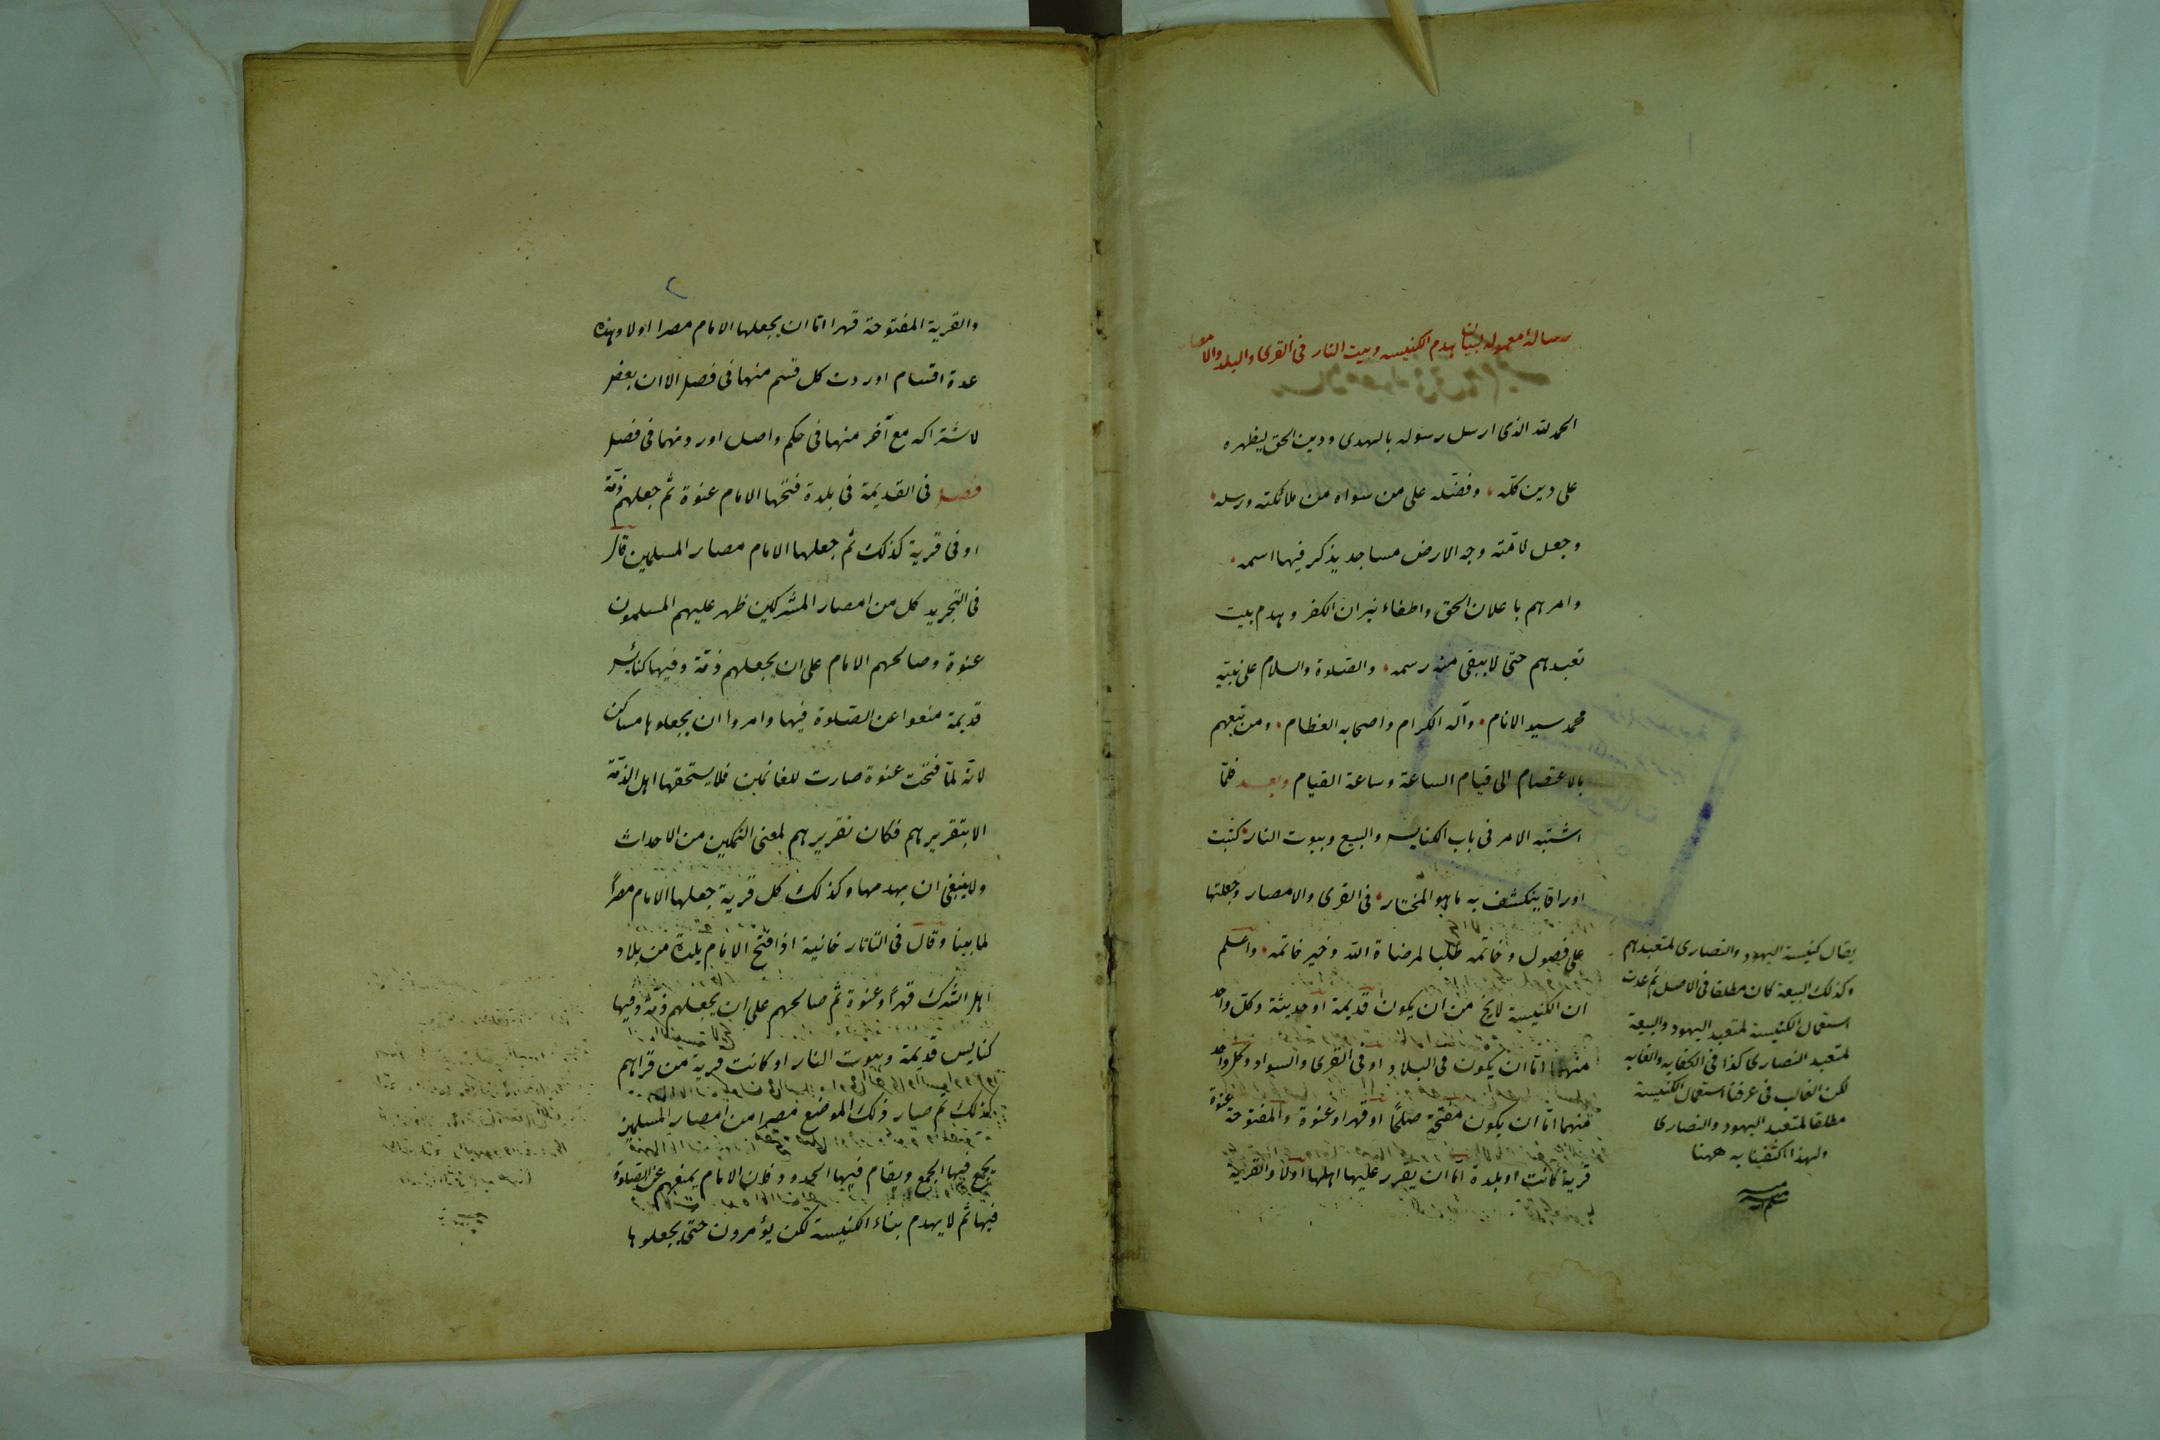 رسالة معمولة لبيان هدم الكنيسة وبيت النار فى القرى والبلد والامصار
الحمد لله الذى ارسل رسوله بالهدى ودين الحق ليظهره
على دين كله، وفضله على من سواه من ملائكته ورسله،
وجعل لامّته وجه الارض مساجد يذكر فيها اسمه،
وامرهم باعلان الحق واطفاء نيران الكفر وهدم بيت
تعبدهم حتى لا يبقى منه رسمه، والصلوة والسلام على نبيّه
محمد سيد الانام، وآله الكرام واصحابه العظام، ومن تبعهم
بالاعتصام الى قيام الساعة وساعة القيام وبعد فلمّا
اشتبه الامر فى باب الكنايس والبيع وبيوت النار، كتبت
اوراقا ينكشف به ما هو المختار، فى القرى والامصار وجعلتها
على فصول وخاتمه طلبا لمرضاة الله وخير خاتمه، واعلم
ان الكنيسة لا يخ من ان يكون قديمة او حديثة وكل واحد
منهما امّا ان يكون فى البلاد او فى القرى والسواد وكل واحد
منهما امّا ان يكون مفتحة صلحًا او قهرا وعنوة والمفتوحة عنوة
قرية كانت او بلدة امّا ان يقرر عليها اهلها اولا والقرية
يقال كنيسة اليهود والنصارى لمتعبدهم
وكذلك البيعة كان مطلقا فى الاصل ثم غلب
استعمال الكنيسة لمتعبد اليهود والبيعة
لمتعبد النصارى كذا فى الكفاية والغاية
لكن الغالب فى عرفنا استعمال الكنيسة
مطلقا لمتعبد اليهود والنصارى
ولهذا اكتفينا به ههنا
والقرية المفتوحة قهرا امّا ان يجعلها الامام مصرا اولا وهذه
عدة اقسام اوردت كل قسم منها فى فصل الا ان بعض
لاشتراكه مع آخر منها فى حكم واصل اوردتهما فى فصل
فصل فى القديمة فى بلدة فتحها الامام عنوة ثم جعلهم ذمّة
او فى قرية كذلك ثم جعلها الامام مصار المسلمين قال
فى التجريد كل من امصار المشركين ظهر عليهم المسلمون
عنوة وصالحهم الامام على ان يجعلهم ذمّة وفيها كنائس
قديمة منعوا عن الصلوة فيها وامروا ان يجعلوها مساكن
لانّه لمّا فتحت عنوة صارت للغانمين فلا يستحقها اهل الذمّة
الا بتقريرهم فكان تقريرهم لمعنى التمكين من الاحداث
ولا ينبغى ان يهدمها وكذلك كل قرية جعلها الامام مصرًا
لما بينا وقال فى التاتارخانية اذا فتح الامام بلدة من بلاد
اهل الشرك قهرًا وعنوة ثم صالحهم على ان يجعلهم ذمّة وفيها
كنايس قديمة وبيوت النار او كانت قرية من قراهم
كذلك ثم صار ذلك الموضع مصرا من امصار المسلمين
يجمع فيها الجمع ويقام فيها الحدود فان الامام يمنعهم عن الصلوة
فيها ثم لا يهدم بناء الكنيسة لكن يؤمرون حتى يجعلوها